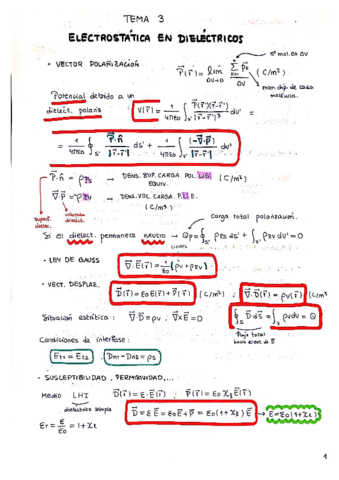 TEMA 3
ELECTROSTÁTICA EN DIELÉCTRICOS
• VECTOR POLARIZACIÓN
P⃗(r⃗) = lím ΔV→0 Σ p⃗k / ΔV (C/m²)
nº mol. en ΔV
mom. dip. de cada molécula.
Potencial debido a un dieléct. polariz
V(r⃗) = 1/4πε0 ∫v' P⃗(r⃗')(r⃗-r⃗') / |r⃗-r⃗'|³ dv' =
= 1/4πε0 ∮s' P⃗·n̂ / |r⃗-r⃗'| ds' + 1/4πε0 ∫v' (-∇⃗·P⃗) / |r⃗-r⃗'| dv'
P⃗·n̂ = ρps → DENS. SUP. CARGA POL. LIG. (C/m²)
EQUIV.
∇⃗·P⃗ = ρpv → DENS. VOL. CARGA P. LIE.
(C/m³)
superf. dieléc.
volumen dieléct.
Carga total polarización.
Si el dieléct. permanece neutro → Qp = ∮s' ρps ds' + ∫v' ρpv dv' = 0
• LEY DE GAUSS
∇⃗·E⃗(r⃗) = 1/ε0 (ρv + ρpv)
• VECT. DESPLAZ.
D⃗(r⃗) = ε0 E⃗(r⃗) + P⃗(r⃗) (C/m²) ; ∇⃗·D⃗(r⃗) = ρv(r⃗) (C/m³
Situación estática : ∇⃗·D⃗ = ρv ; ∇⃗×E⃗ = 0
∮s D⃗ ds⃗ = ∫v ρv dv = Q
Flujo total
Condiciones de interfase :
Et1 = Et2
Dn1 - Dn2 = ρs
• SUSCEPTIBILIDAD, PERMITIVIDAD,...
Medio LHI
D⃗(r⃗) = ε·E⃗(r⃗) ; P⃗(r⃗) = ε0 χe E⃗(r⃗)
dieléctrico simple
D⃗ = ε E⃗ = ε0 E⃗ + P⃗ = ε0 (1+χe) E⃗ → ε = ε0 (1+χe)
εr = ε/ε0 = 1+χe
1